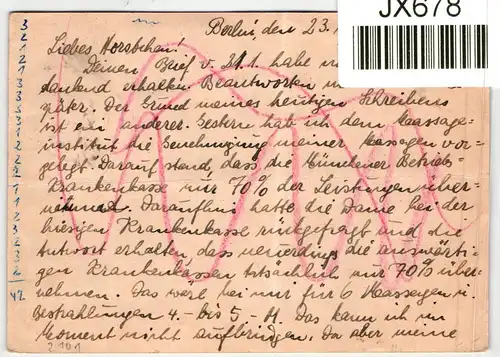 JX678
Berlin, den 23.
Liebes Horstchen!
Deinen Brief v. 21.1. habe
dankend erhalten. Beantworten
später. Der Grund meines heutigen Schreibens
ist ein anderer. Gestern hab ich dem Massage=
institut die Genehmigung meiner Massagen vor=
gelegt. Darauf stand, dass die Münchener Betriebs=
Krankenkasse nur 70% der Leistungen über=
nehmen. Daraufhin hatte die Dame bei der
hiesigen Krankenkasse rückgefragt und die
Antwort erhalten, dass neuerdings die auswärti=
gen Krankenkassen tatsächlich nur 70% über=
nehmen. Das wäre bei mir für 6 Massagen u.
Bestrahlungen 4.- bis 5.- M. Das kann ich im
Moment nicht aufbringen. Da aber meine
3
2
1
2
1
3
3
3
42